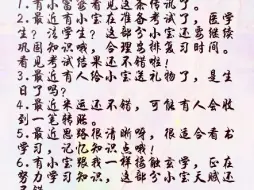 1.有小富窝看见这条传讯了。
2.最近有小宝在准备考试了,医学
生?法学生?这部分小宝还需继续
巩固知识哦,合理安排复习时间。
看见考试结果还不错啦!
3.最近有人给小宝送礼物了,是生
日了吗?
4.最近来运还不错,可能有人会收
到一笔转账。
5.最近思路很清晰呀,很适合看书
学习,记忆知识点哦!
6.有小宝跟我一样接触玄学,正在
努力学习知识,这部分小宝天赋还
不错。